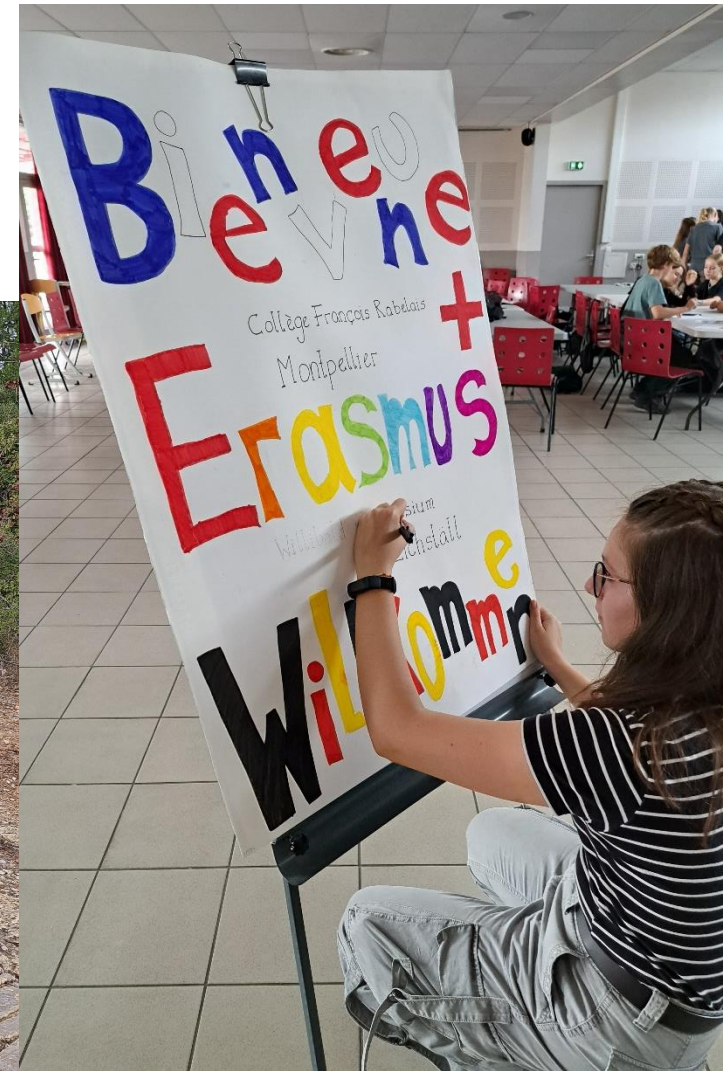 Bienvenue
Collège François Rabelais
Montpellier
Erasmus+
sium
Eichstätt
Willkommen